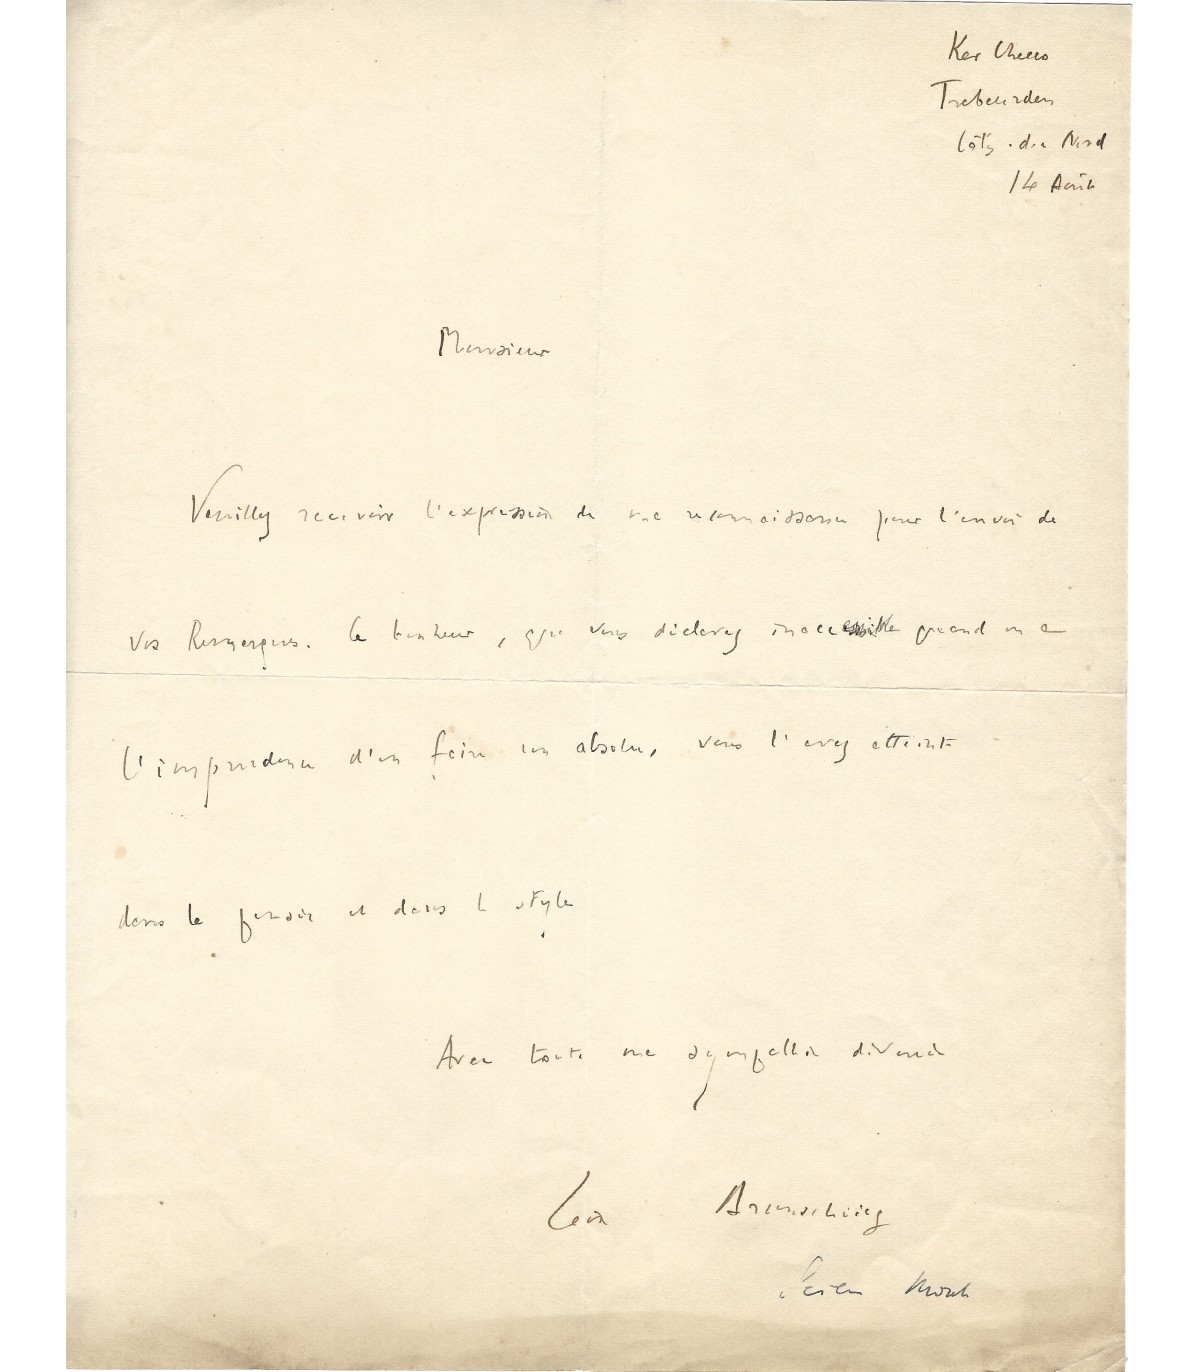 Ker
Trebeurden
Côtes-du Nord
14 Août
Monsieur
Veuillez recevoir l'expression de ma reconnaissance pour l'envoi de
vos Remarques. Le bonheur, que vous déclarez inaccessible quand on a
l'imprudence d'en faire un absolu, vous l'avez atteint
dans la pensée et dans le style
Avec toute ma sympathie dévouée
Léon Brunschvicg